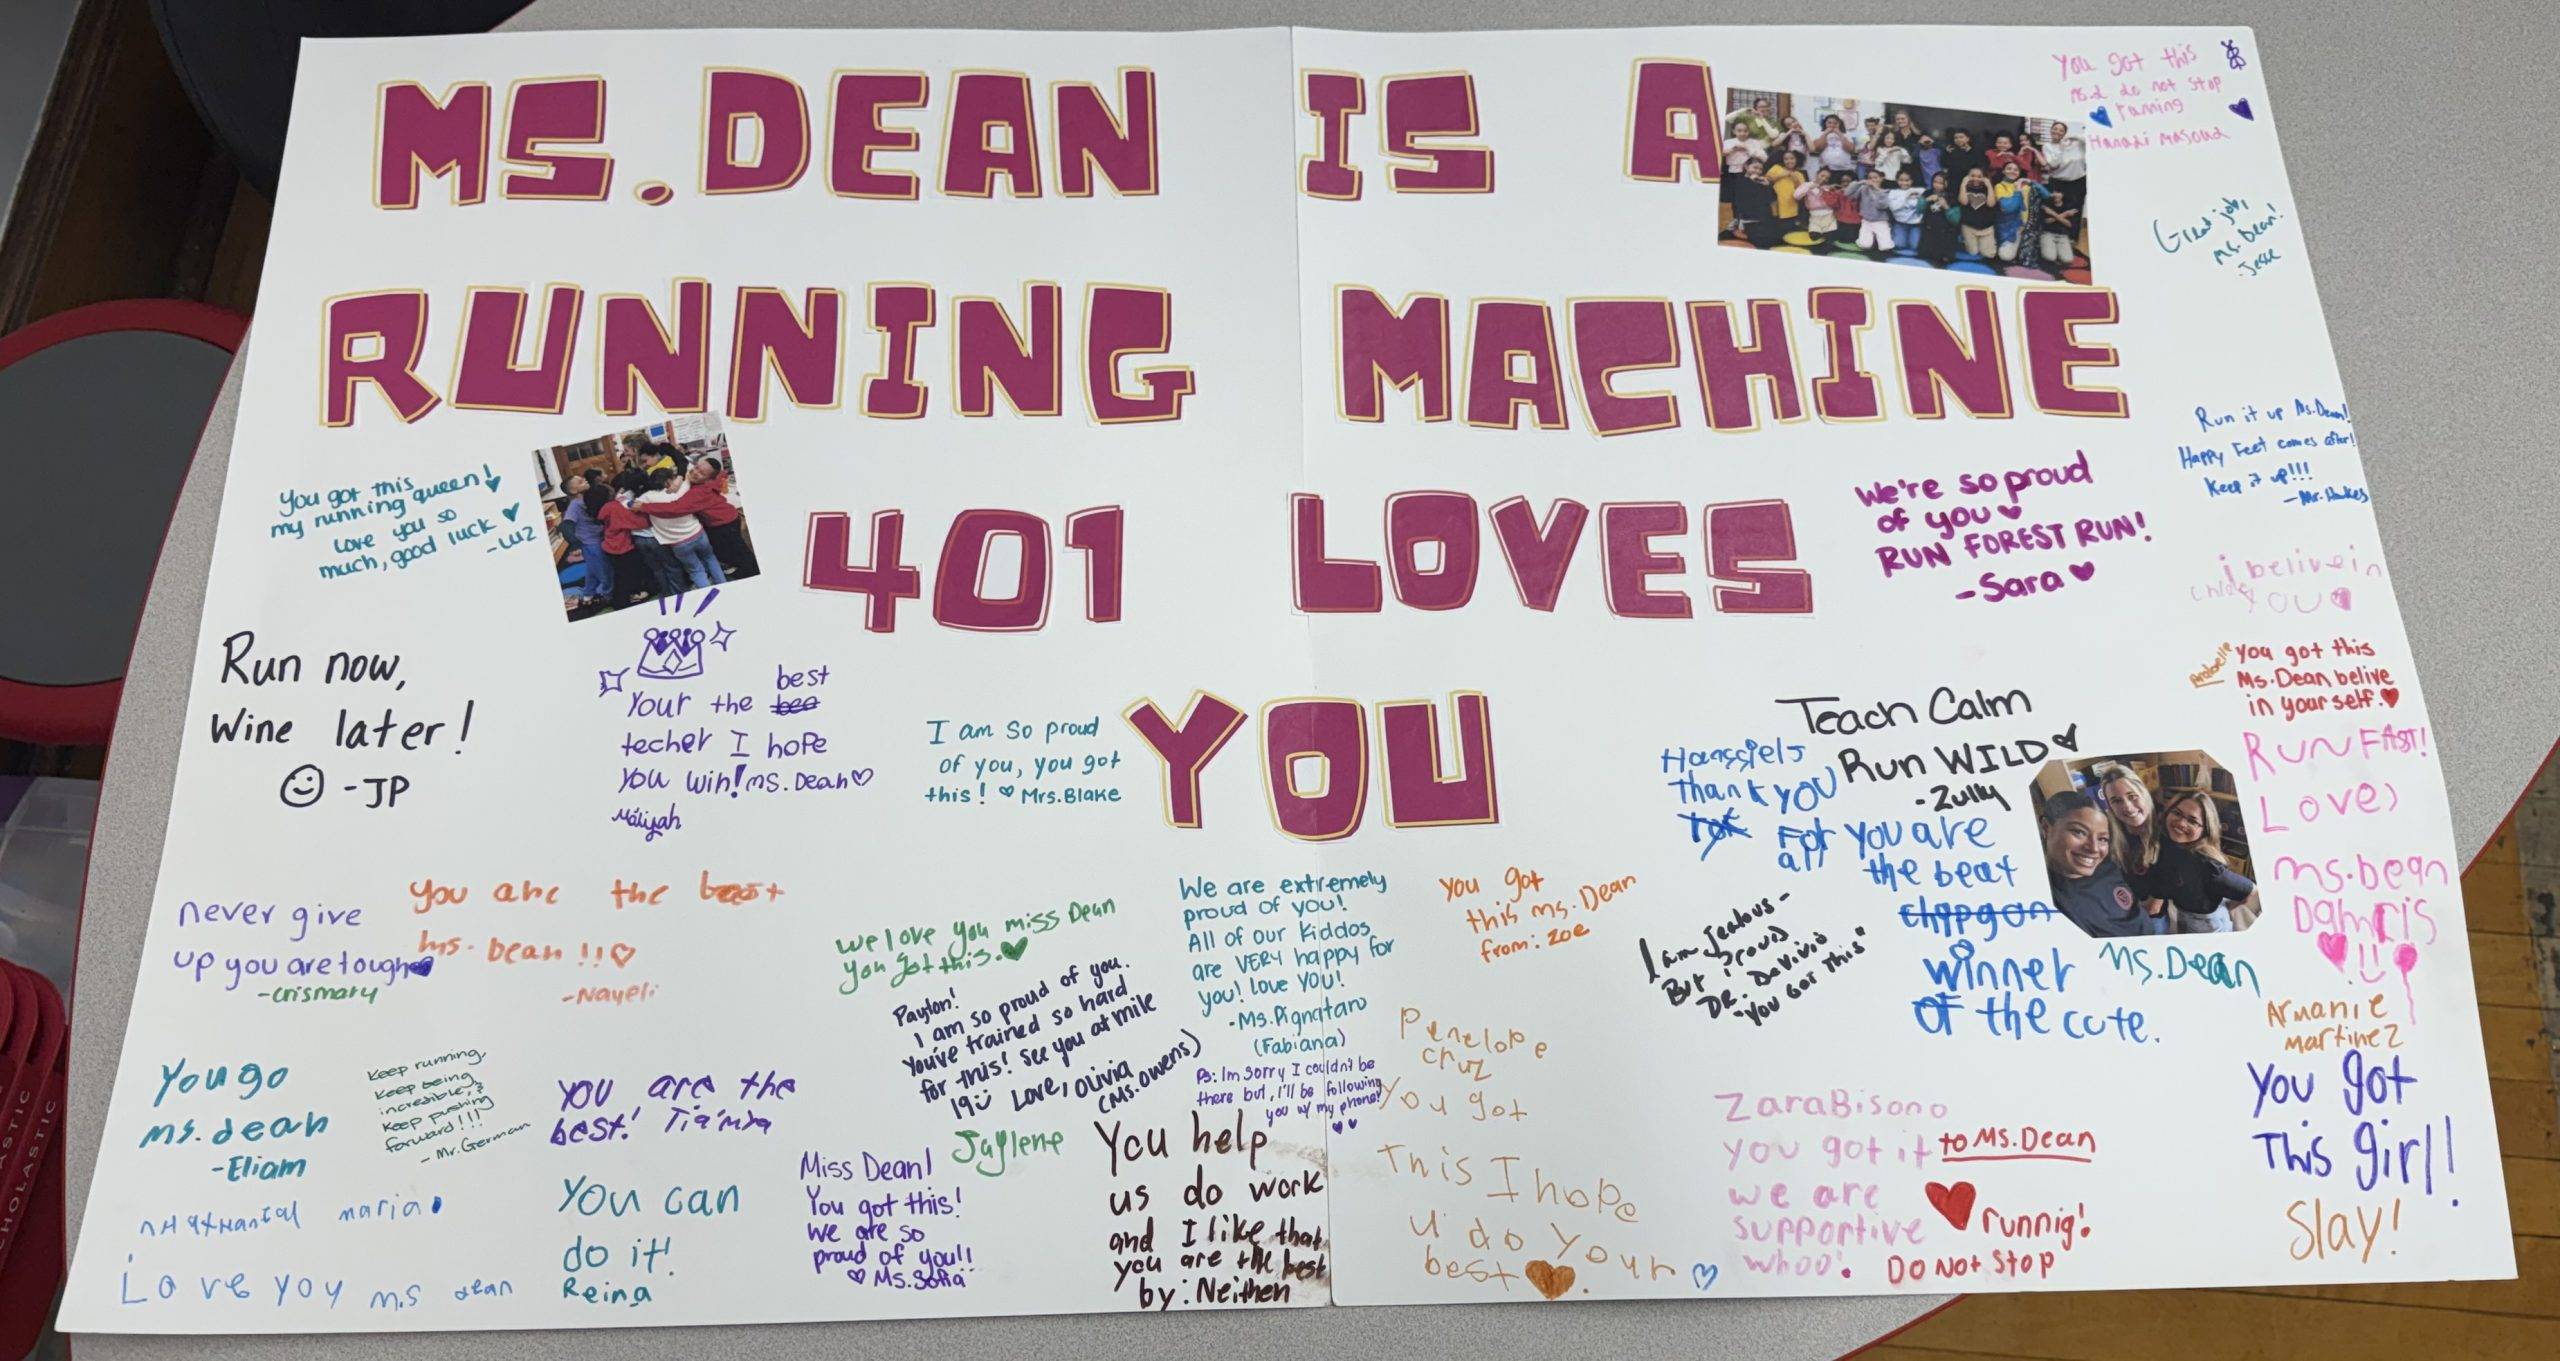 MS. DEAN IS A
RUNNING MACHINE
401 LOVES
YOU
You got this
Ms.d do not stop
Great job,
Ms. Dean!
-Jesse
Run it up Ms. Dean!
Happy Feet comes after!
Keep it up!!!
-Mr. Hawkes
You got this
my running queen!
Love you so
much, good luck
-Luz
We're so proud
of you
RUN FOREST RUN!
-Sara
i belive in
chloe you
Run now,
Wine later!
-JP
best
Your the
techer I hope
you win! Ms. Dean
Maliyah
I am so proud
of you, you got
this! Mrs. Blake
Arabelle
You got this
Ms. Dean belive
in your self.
Teach Calm
Run WILD
-Zully
Hanssiels
Thank you
For you are
all the beat
winner
OF the cute.
Ms. Dean
I am Jealous -
But Proud
"You Got This"
Run FAST!
Love,
ms. Dean
Damaris
Armanie
Martinez
You got
This girl!
Slay!
never give
up you are tough
-Crismary
you are the best
ms. Dean!!
-Nayeli
we love you miss Dean
you got this.
Jaylene
Payton!
I am so proud of you.
You've trained so hard
for this! See you at mile
19 Love, Olivia
(Ms. Owens)
We are extremely
proud of you!
All of our kiddos
are VERY happy for
you! love you!
-Ms. Pignataro
(Fabiana)
Ps: Im sorry I couldn't be
there but, I'll be following
you w/ my phone!
you got
this ms. Dean
from: zoe
Penelope
cruz
You got
This I hope
u do your
best
You go
ms. dean
-Eliam
Keep running,
Keep being
incredible,
Keep pushing
forward!!!
- Mr. German
you are the
best! Tianna
Love you ms dean
You can
do it!
Reina
Miss Dean!
You got this!
We are so
proud of you!!
Ms. Sofia
You help
us do work
and I like that
you are the best
by: Neithen
Zara Bisono
you got it
we are
supportive
whoo!
to Ms. Dean
runnig!
DO NOT STOP
SCHOLASTIC